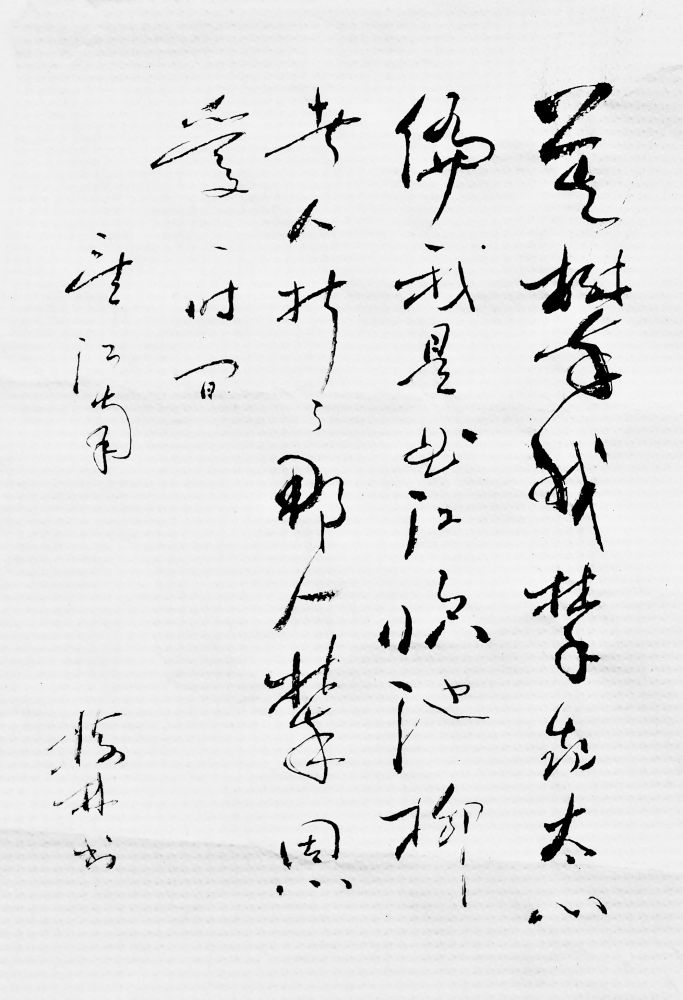 莫攀我攀我太心
偏我是曲江临池柳
者人折了那人攀恩
爱一时间
望江南
林书